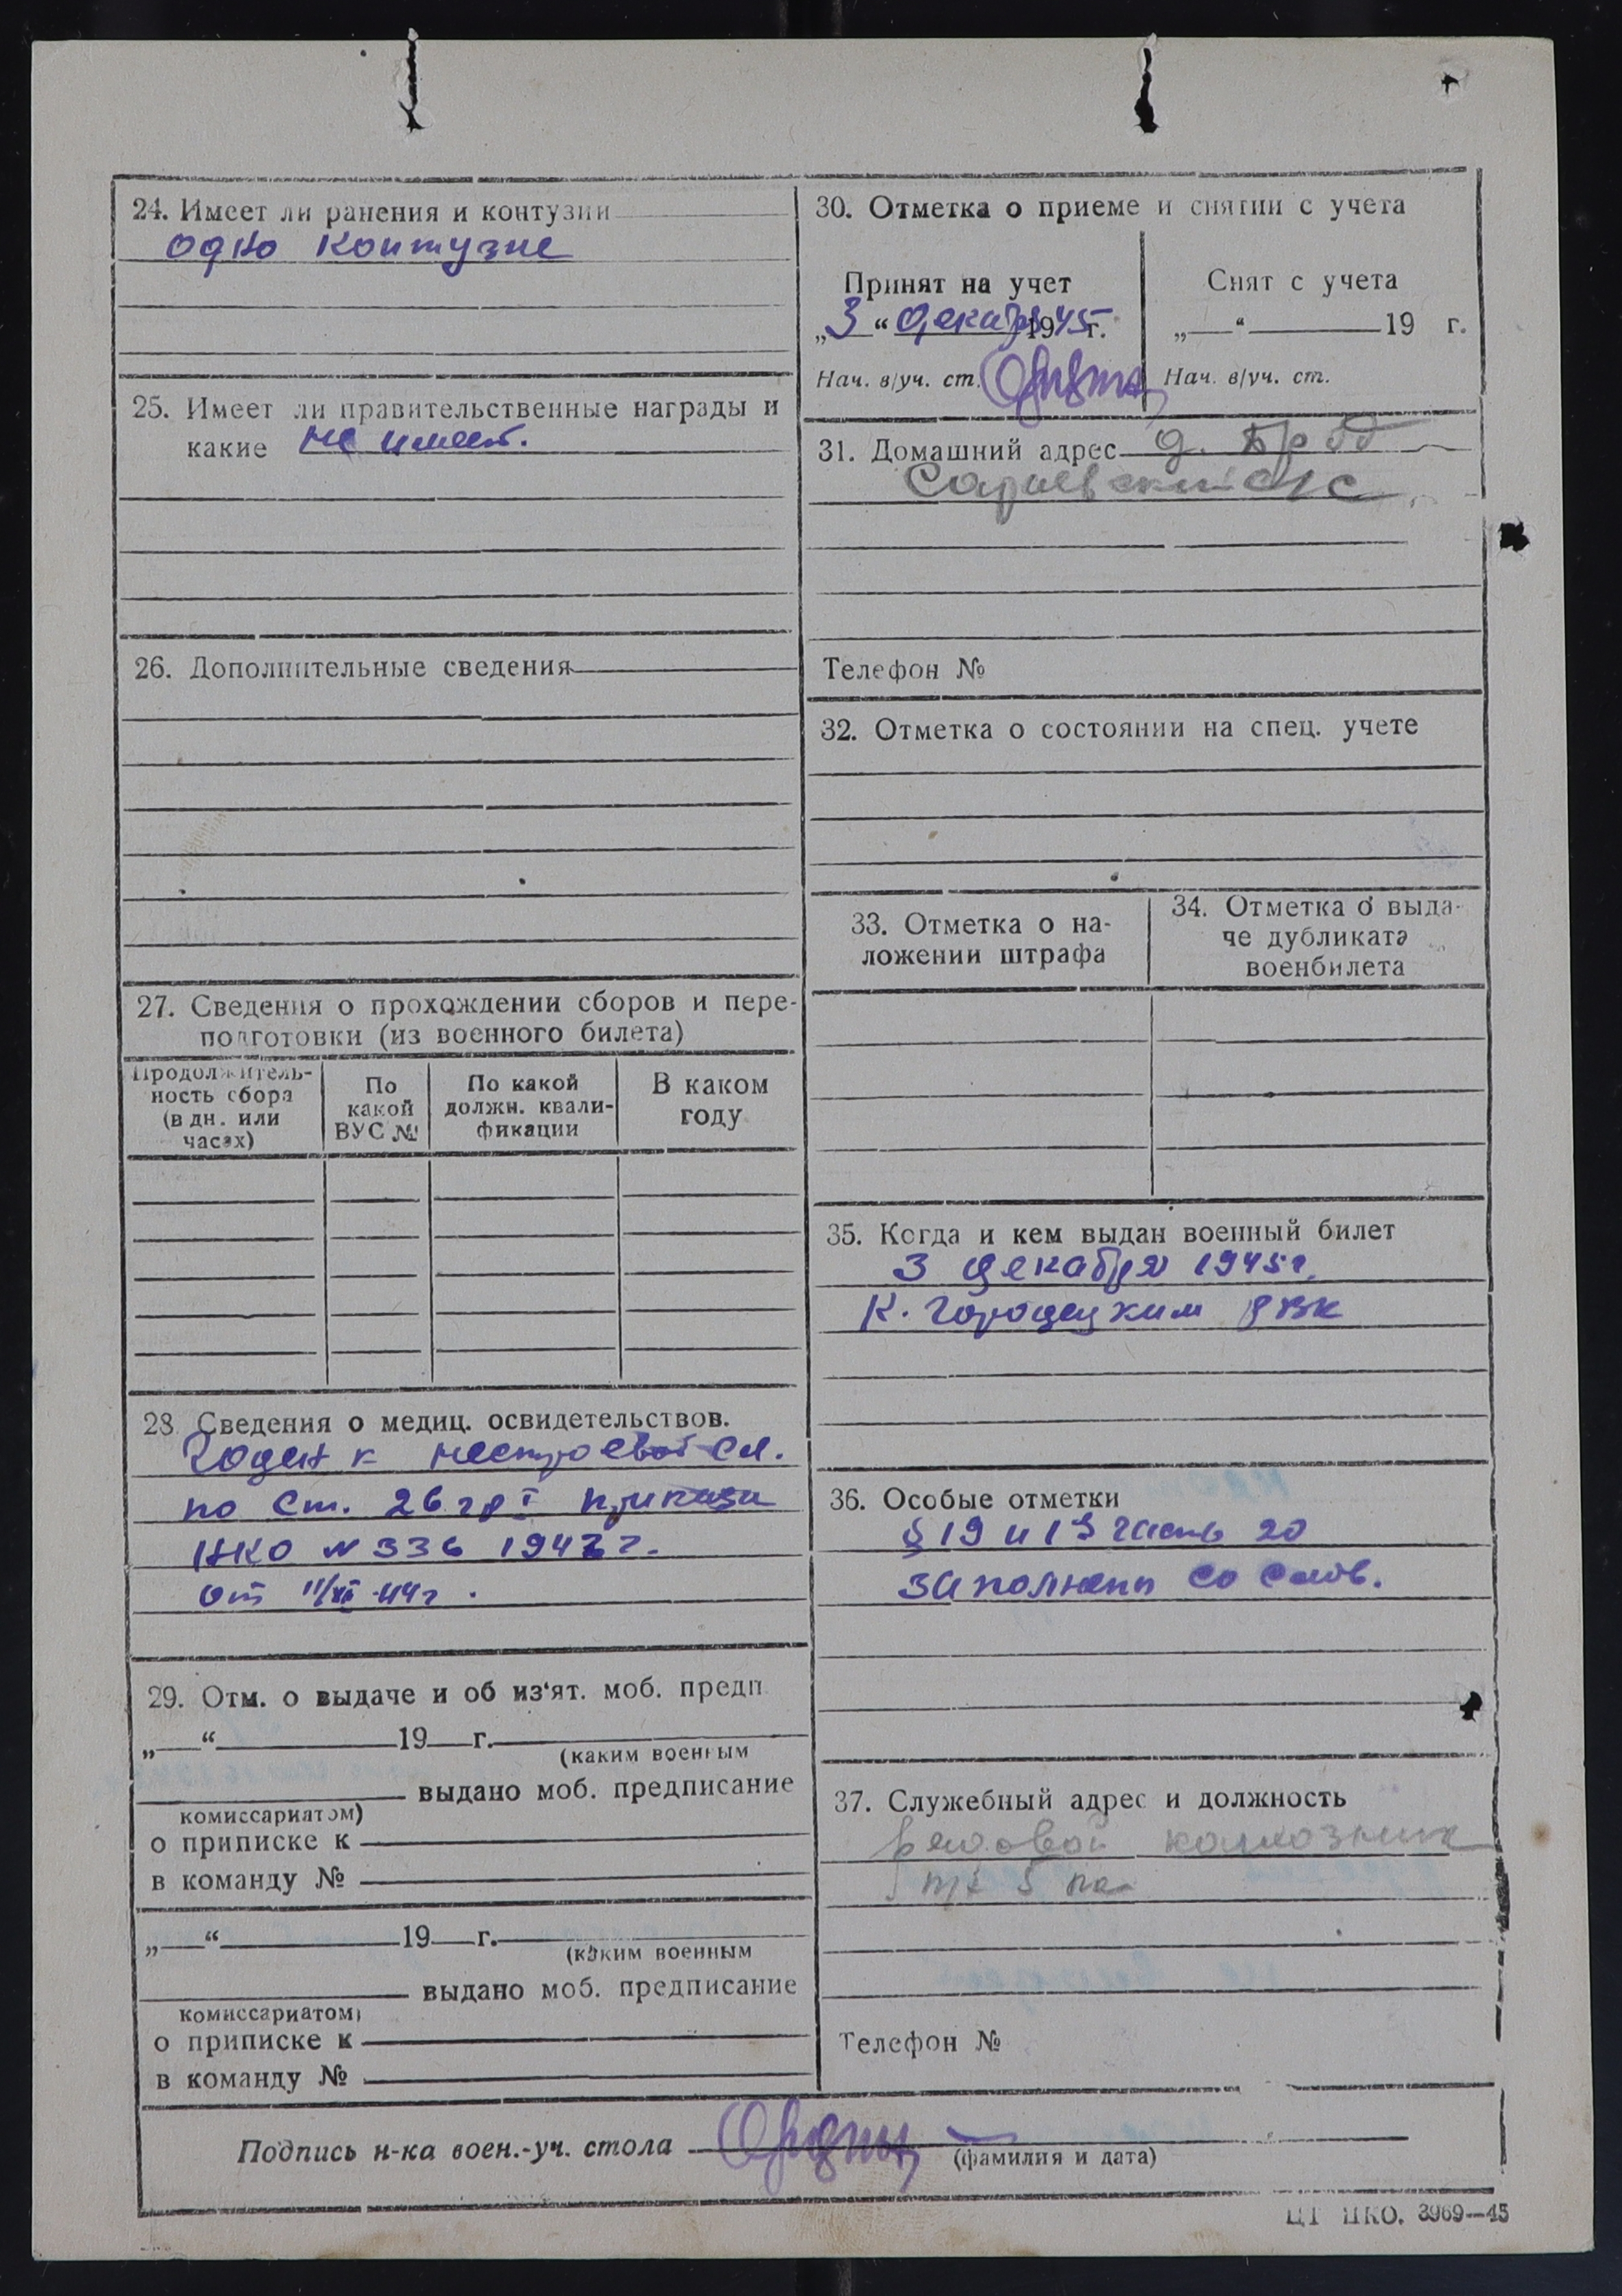 24. Имеет ли ранения и контузии
одно контузие
25. Имеет ли правительственные награды и
какие не имеет.
26. Дополнительные сведения
27. Сведения о прохождении сборов и пере-
подготовки (из военного билета)
Продолжитель-
ность сбора
(в дн. или
часах)
По
какой
ВУС №
По какой
должн. квали-
фикации
В каком
году
28 Сведения о медиц. освидетельствов.
Годен к нестроевой сл.
по ст. 26 гр I приказа
НКО N 336 1942 г.
от 11/XII-44г.
29. Отм. о выдаче и об из'ят. моб. предп.
„ “ 19 г.
(каким военным
выдано моб. предписание
комиссариатом)
о приписке к
в команду №
„ “ 19 г.
(каким военным
выдано моб. предписание
комиссариатом)
о приписке к
в команду №
30. Отметка о приеме и снятии с учета
Принят на учет
„3“ декабря 1945 г.
Нач. в/уч. ст.
Снят с учета
„ “ 19 г.
Нач. в/уч. ст.
31. Домашний адрес д.
с/с
Телефон №
32. Отметка о состоянии на спец. учете
33. Отметка о на-
ложении штрафа
34. Отметка о выда-
че дубликата
военбилета
35. Когда и кем выдан военный билет
3 декабря 1945 г.
К. Городецким РВК
36. Особые отметки
§ 19 и 13 часть 20
заполнены со слов.
37. Служебный адрес и должность
рядовой колхозник
Телефон №
Подпись н-ка воен.-уч. стола
(фамилия и дата)
ЦТ НКО. 3969—45